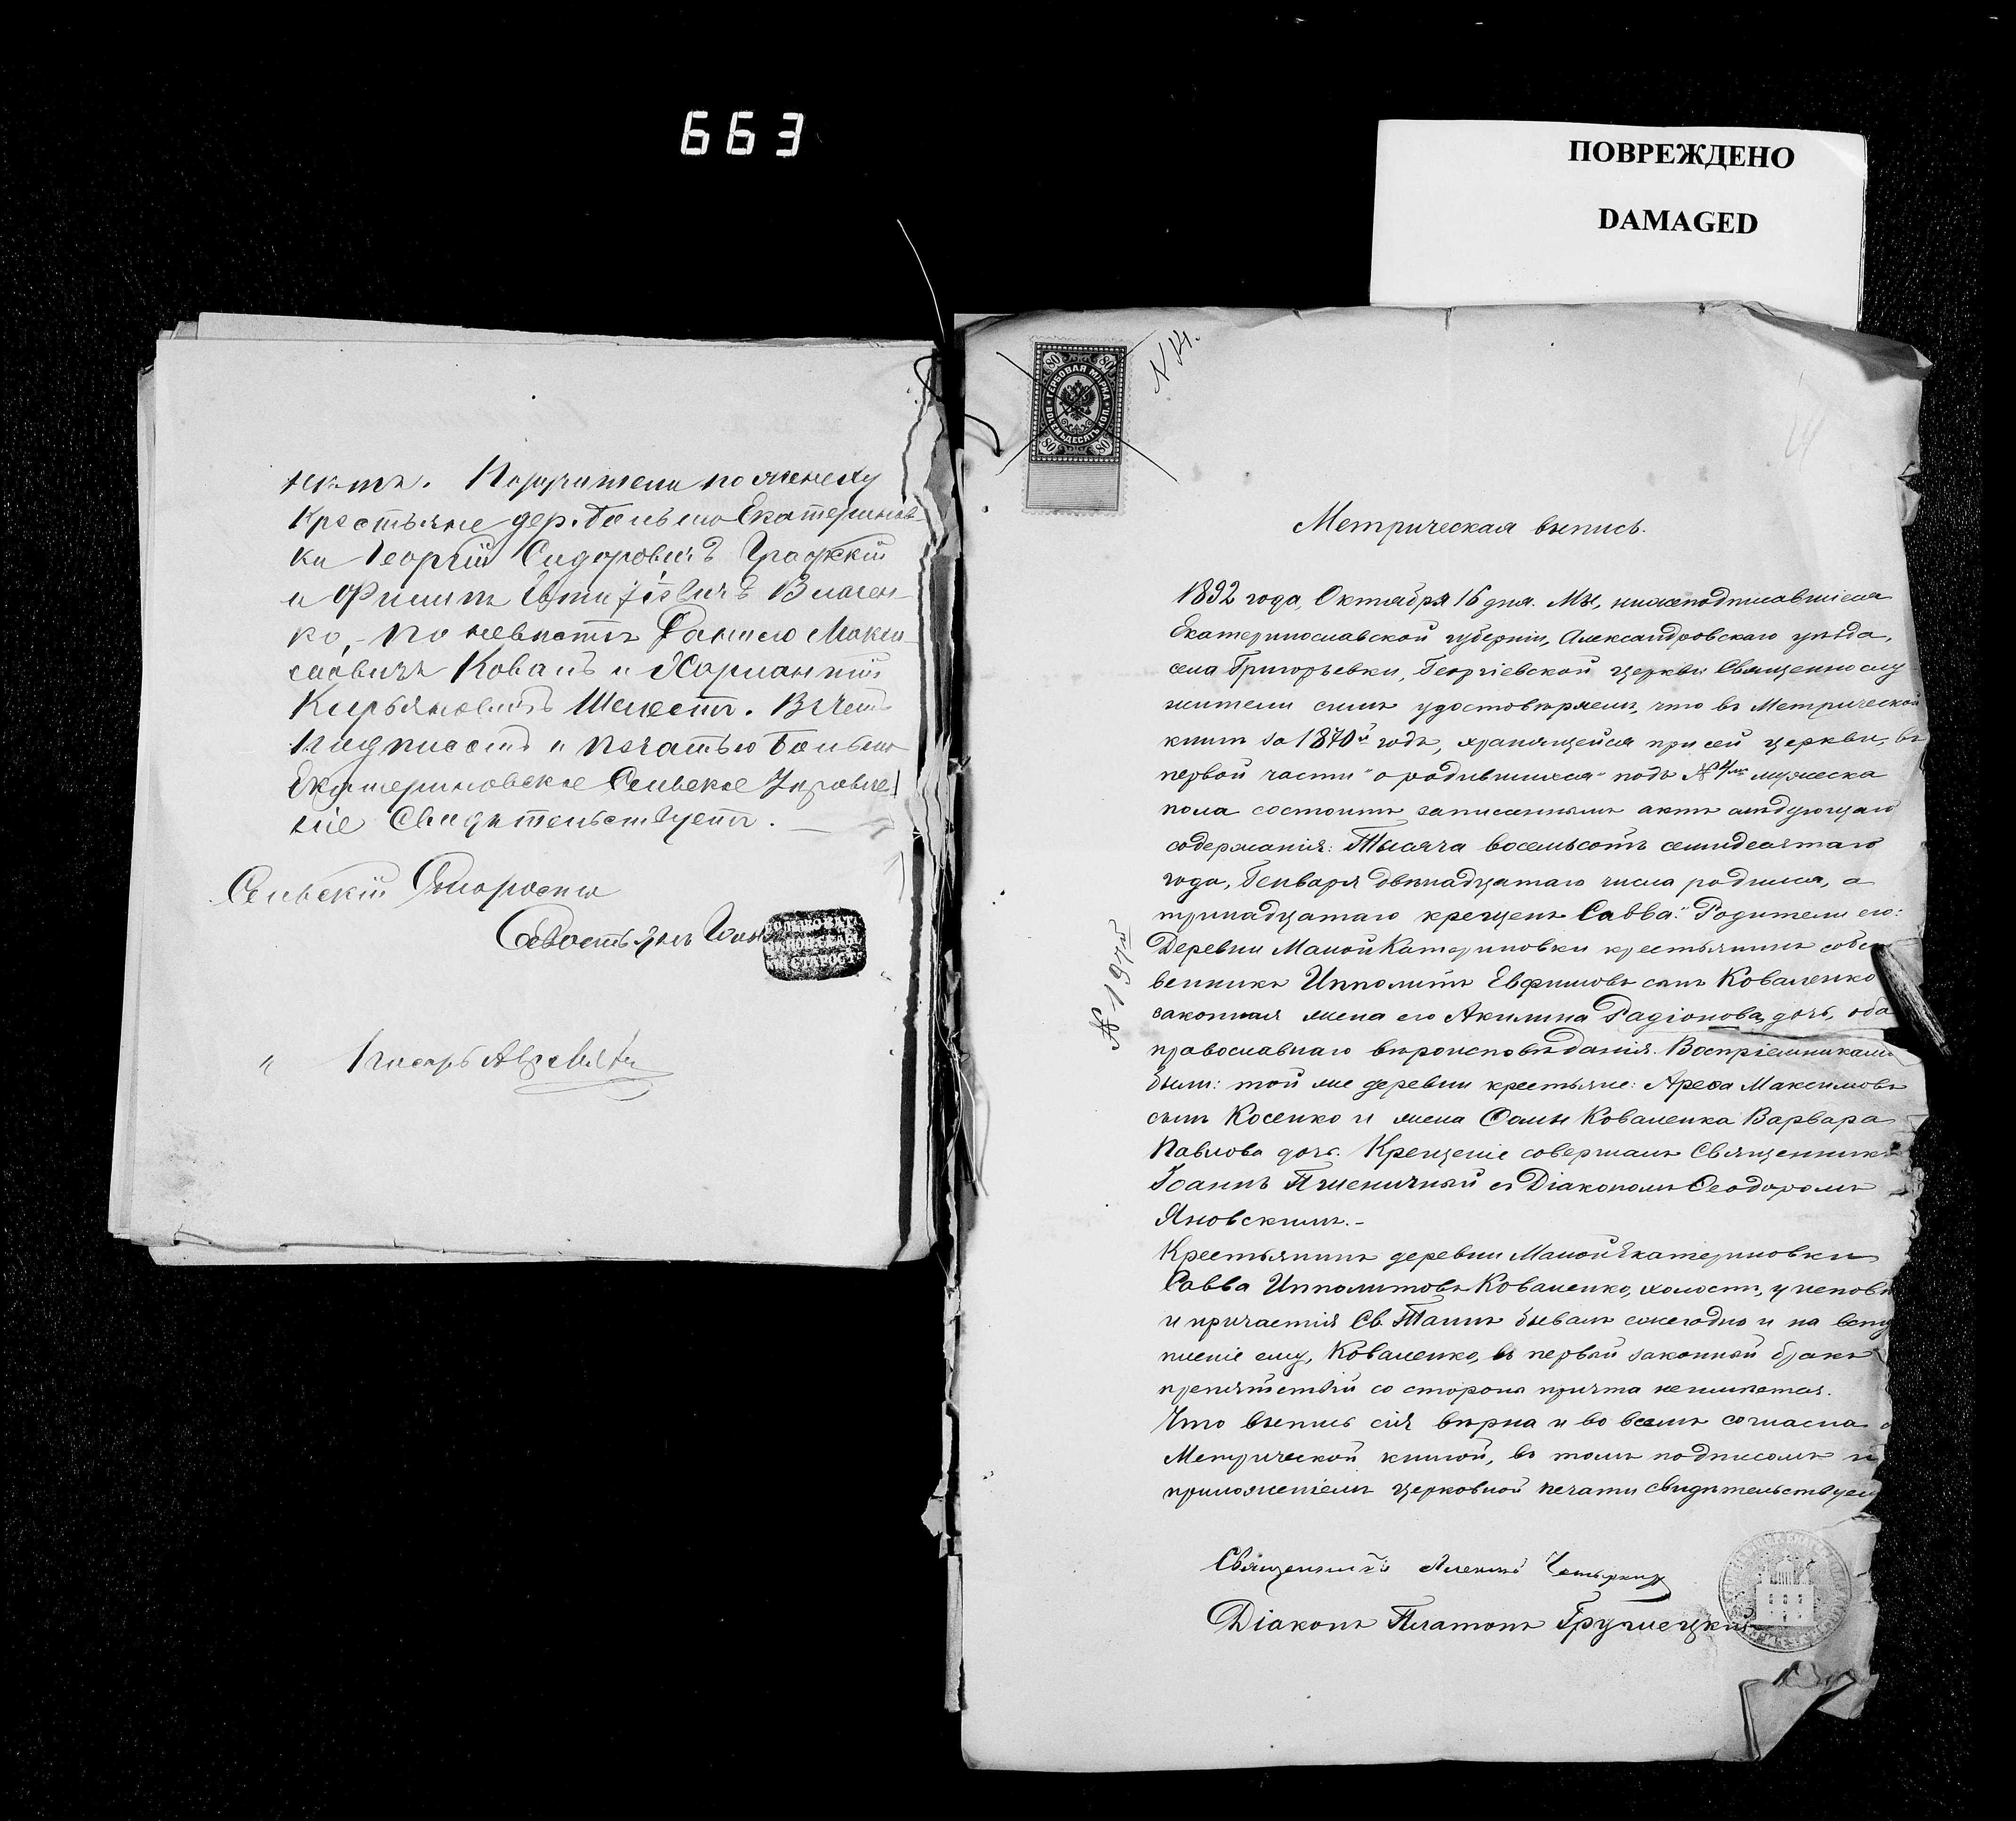 663
ПОВРЕЖДЕНО
DAMAGED
нетъ. Поручители по жениху
Крестьяне дер. Больше Екатеринов-
ки Георгій Сидоровичъ
и Филипъ Власен-
ко, - по невѣстѣ Данило Макси-
мовичъ Коваль и Харлампій
Кирьяновичъ Шелестъ. В чемъ
подписомъ и печатью Больше
Екатериновское Сельское Управле-
ніе Свидѣтельствуетъ.
Сельскій Староста
Севостьянъ
СТАРОСТ
Писарь
N 14.
80 80
ГЕРБОВАЯ МАРКА
ВОСЕМЬДЕСЯТЪ КОП.
80 80
Метрическая выпись.
1892 года, Октября 16 дня. Мы, нижеподписавшіеся
Екатеринославской губерніи, Александровскаго уѣзда,
села Григорьевки, Георгіевской церкви Священнослу
жители симъ удостовѣряемъ, что въ Метрической
книгѣ за 1870й годъ, хранящейся при сей церкви, въ
первой части "о родившихся" подъ № 4мъ мужеска
пола состоитъ записаннымъ актъ слѣдующаго
содержанія: Тысяча восемьсотъ семидесятаго
года, Генваря двѣнадцатаго числа родился, а
тринадцатаго крещенъ Савва." Родители его:
Деревни Малой Катериновки крестьянинъ собст
венникъ Ипполитъ Евфимовъ сынъ Коваленко
законная жена его Акилина Радіонова дочь, оба
православнаго вѣроисповѣданія. Воспріемниками
были: той же деревни крестьяне: Арефа Максимовъ
сынъ Косенко и жена Фомы Коваленка Варвара
Павлова дочь. Крещеніе совершалъ Священникъ
Іоаннъ Пшеничный съ Діакономъ Ѳеодоромъ
Яновскимъ.-
Крестьянинъ деревни Малой Екатериновки
Савва Ипполитовъ Коваленко, холостъ, у исповѣ
и причастія Св. Таинъ бывалъ ежегодно и на всту
пленіе ему, Коваленко, въ первый законный бракъ
препятствій со стороны причта не имѣется.
Что выпись сія вѣрна и во всемъ согласна с
Метрической книгой, въ томъ подписомъ и
приложеніемъ церковной печати свидѣтельствуемъ
№ 197й
Священникъ Алексій
Діаконъ Платонъ Грушецкій